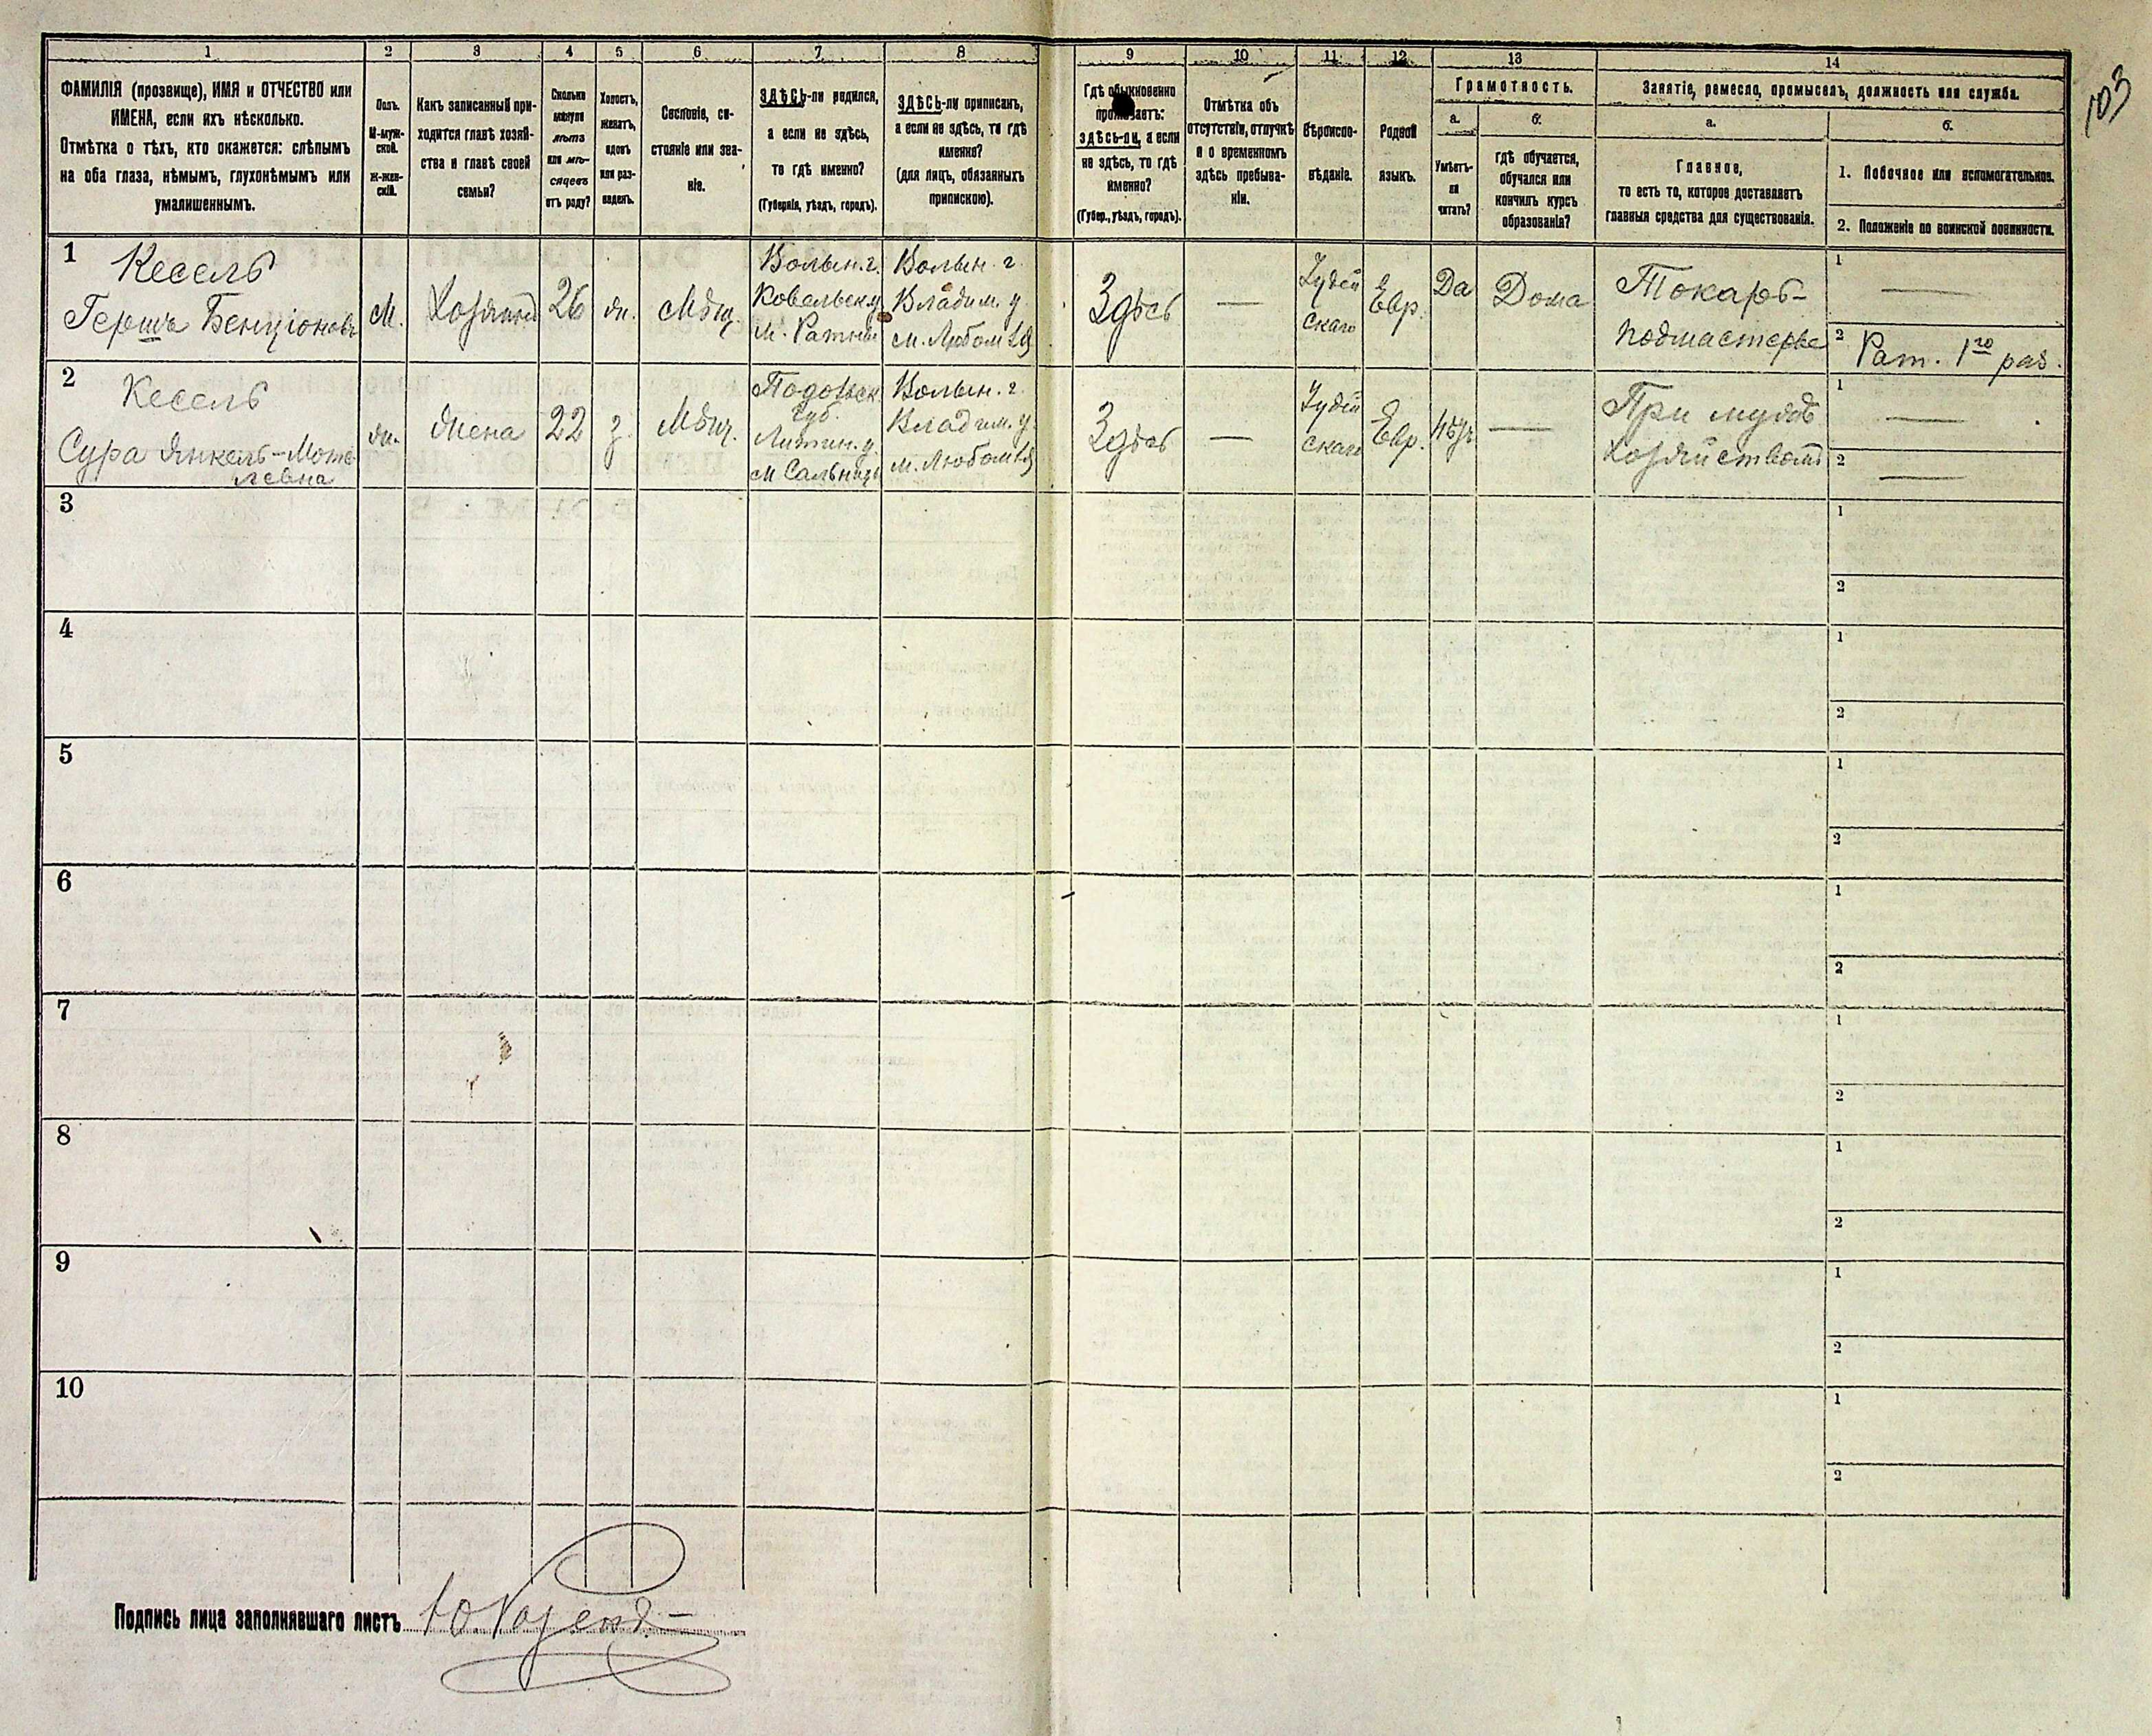 103
1
2
3
4
5
6
7
8
9
10
11
12
13
14
ФАМИЛІЯ (прозвище), ИМЯ и ОТЧЕСТВО или
ИМЕНА, если ихъ нѣсколько.
Отмѣтка о тѣхъ, кто окажется: слѣпымъ
на оба глаза, нѣмымъ, глухонѣмымъ или
умалишеннымъ.
Полъ.
М-муж-
ской.
Ж-жен-
скій.
Какъ записанный при-
ходится главѣ хозяй-
ства и главѣ своей
семьи?
Сколько
минуло
лѣтъ
или мѣ-
сяцевъ
отъ роду?
Холостъ,
женатъ,
вдовъ
или раз-
веденъ.
Сословіе, со-
стояніе или зва-
ніе.
ЗДѢСЬ-ли родился,
а если не здѣсь,
то гдѣ именно?
(Губернія, уѣздъ, городъ).
ЗДѢСЬ-ли приписанъ,
а если не здѣсь, то гдѣ
именно?
(для лицъ, обязанныхъ
припискою).
Гдѣ обыкновенно
проживаетъ:
здѣсь-ли, а если
не здѣсь, то гдѣ
именно?
(Губер., уѣздъ, городъ).
Отмѣтка объ
отсутствіи, отлучкѣ
и о временномъ
здѣсь пребыва-
ніи.
Вѣроиспо-
вѣданіе.
Родной
языкъ.
Грамотность.
а.
Умѣетъ-
ли
читать?
б.
гдѣ обучается,
обучался или
кончилъ курсъ
образованія?
Занятіе, ремесло, промыселъ, должность или служба.
а.
Главное,
то есть то, которое доставляетъ
главныя средства для существованія.
б.
1. Побочное или вспомогательное.
2. Положеніе по воинской повинности.
1
Кесель
Гершъ Бенціоновъ
М.
Хозяинъ
26
ж.
Мѣщ.
Волын. г.
Ковельск. у
м. Ратны
Волын. г
Владим. у
м. Любомль
Здѣсь
—
Іудей
скаго
Евр.
Да
Дома
Токарь-
подмастерье
1
—
2
Рат. 1го раз.
2
Кесель
Сура Янкель-Моте
левна
ж.
Жена
22
з.
Мѣщ.
Подольск.
губ.
Литин. у.
м Сальница
Волын. г.
Владим. у.
м. Любомль
Здѣсь
—
Іудей
скаго
Евр.
Нѣтъ
—
При мужѣ
хозяйствомъ
1
—
2
—
3
1
2
4
1
2
5
1
2
6
1
2
7
1
2
8
1
2
9
1
2
10
1
2
Подпись лица заполнявшаго листъ